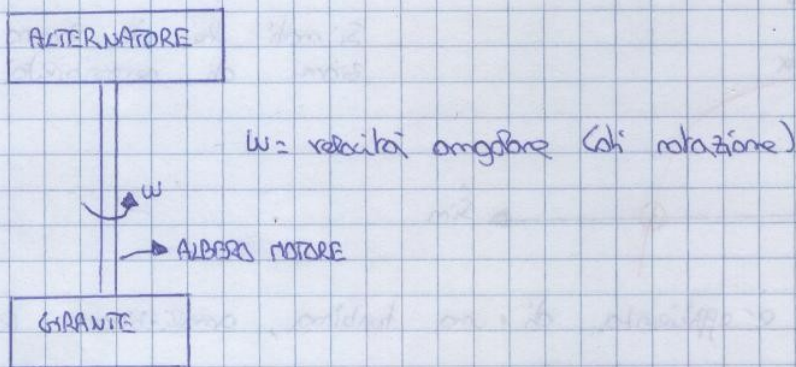 ALTERNATORE
ω = velocità angolare (di rotazione)
ω
ALBERO MOTORE
GIRANTE